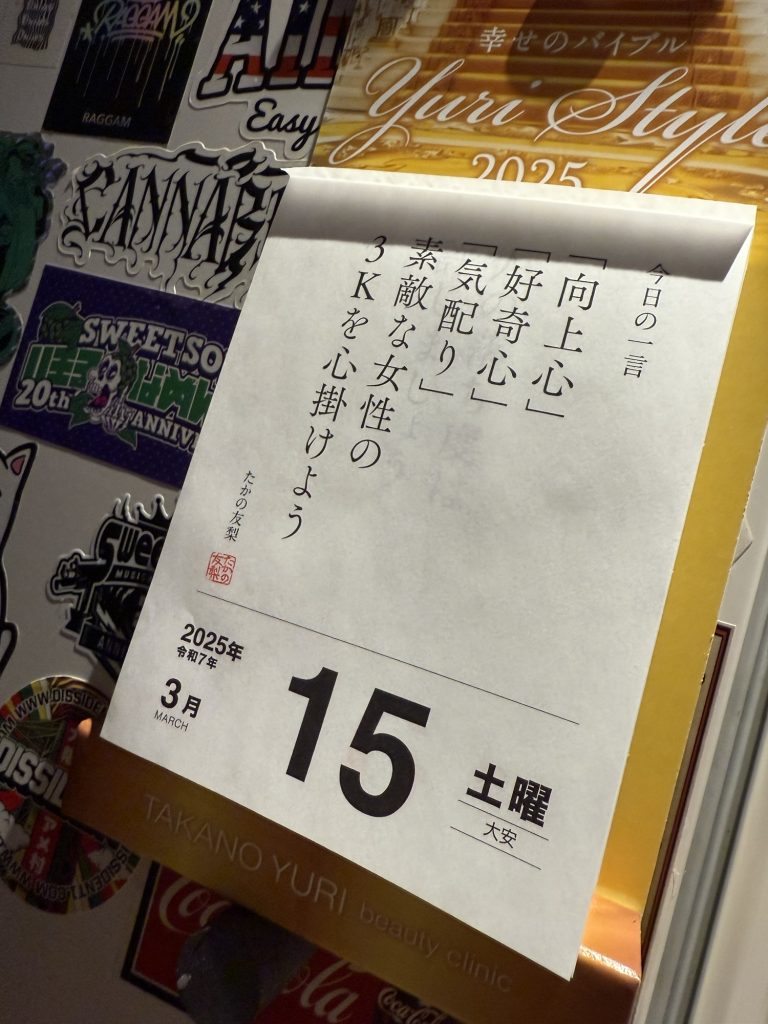 RAGGAM
RAGGAM
Easy
幸せのバイブル
Yuri Style
2025
SWEET SO
20th
ANNIV
今日の一言
「向上心」
「好奇心」
「気配り」
素敵な女性の
3Kを心掛けよう
たかの友梨
たかの
友梨
2025年
令和7年
3月
MARCH
15
土曜
大安
TAKANO YURI beauty clinic
WWW.DISSIDENT
DISSID
アメ村
Coca-Cola